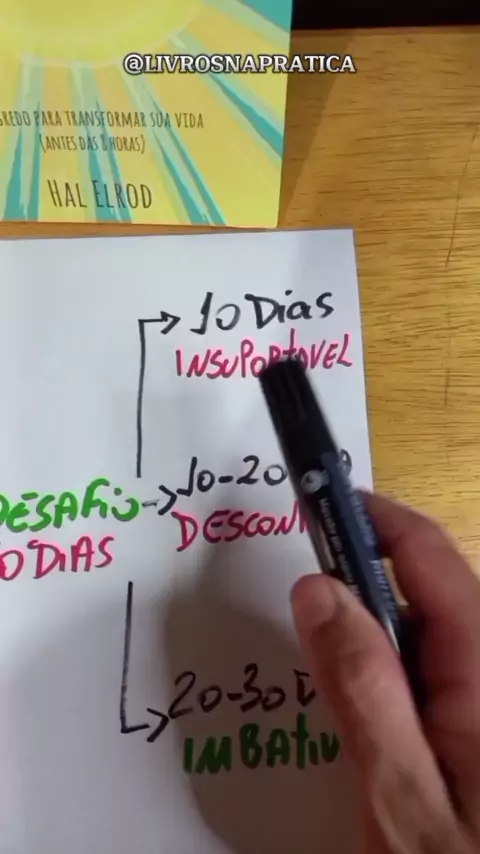 @LIVROSNAPRATICA
GREDO PARA TRANSFORMAR SUA VIDA
(ANTES DAS 8 HORAS)
HAL ELROD
10 Dias
INSUPORTAVEL
DESAFiO
10-20
DESCON
0 DiAS
20-30 D
iMBAtiV